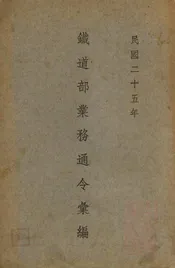 民國二十五年
鐵道部業務通令彙編